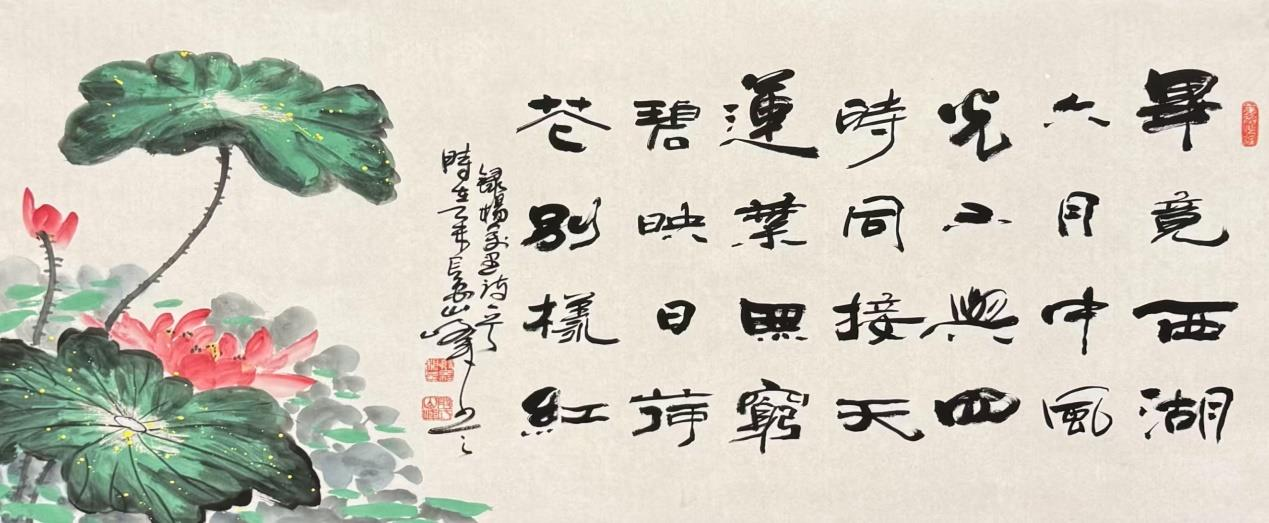 畢竟西湖
六月中風
光不與四
時同接天
蓮葉無窮
碧映日荷
花別樣紅
錄楊萬里詩一首
時在
長安山